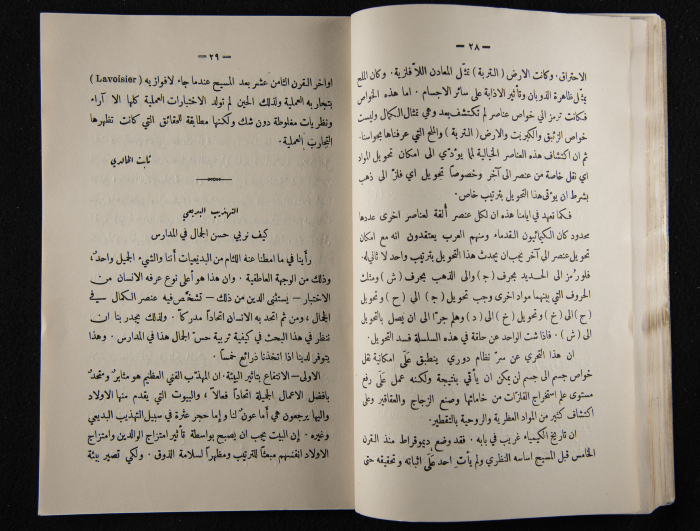 — ٢٨ —
الاحتراق . وكانت الارض ( التربة ) تمثل المعادن اللا فلزية . وكان الملح
يمثل ظاهرة الذوبان وتأثير الاذابة على سائر الاجسام . اما هذه الخواص
فكانت ترمز الى خواص عناصر لم تكتشف بعد وهي تمثال الكمال وليست
خواص الزئبق والكبريت والارض ( التربة ) والملح التي عرفناها بحواسنا .
ثم ان اكتشاف هذه العناصر الخيالية لما يوءدي الى امكان تحويل المواد
اي نقل خاصة من عنصر الى آخر وخصوصاً تحويل اي فلز الى ذهب
بشرط ان يوءتى هذا التحويل بترتيب خاص .
فكما نعهد في ايامنا هذه ان لكل عنصر ألفة لعناصر اخرى عددها
محدود كان الكيمائيون القدماء ومنهم العرب يعتقدون انه مع امكان
تحويل عنصر الى آخر يجب ان يحدث هذا التحويل بترتيب واحد لا ثاني له .
فلو رُمز الى الحديد بحرف ( ج ) والى الذهب بحرف ( ش ) ومثلت
الحروف التي بينهما مواد اخرى وجب تحويل ( ج ) الى ( ح ) وتحويل
( ح ) الى ( خ ) وتحويل ( خ ) الى ( د ) وهلم جرّا الى ان يصل بالتحويل
الى ( ش ) . فاذا شت الواحد عن حلقة في هذه السلسلة فسد التحويل .
ان هذا التحري عن سر نظام دوري ينطبق عَلَى امكانية نقل
خواص جسم الى جسم لن يكن ان يأتي بنتيجة ولكنه عمل عَلَى رفع
مستوى علم استخراج الفلزات من خاماتها وصنع الزجاج والعقاقير وعلى
اكتشاف كثير من المواد العطرية والروحية بالتقطير .
ان تاريخ الكيمياء غريب في بابه . فقد وضع ديموقراط منذ القرن
الخامس قبل المسيح اساسه النظري ولم يأت احد عَلَى اثباته وتحقيقه حتى
— ٢٩ —
اواخر القرن الثامن عشر بعد المسيح عندما جاء لافوازيه ( Lavoisier )
بتجاربه العملية ولذلك الحين لم تولد الاختبارات العملية كلها الا آراء
ونظريات مغلوطة دون شك ولكنها مطابقة للحقائق التي كانت تظهرها
التجارب العملية .
ثابت الخالدي
التهذيب البديعي
كيف نربي حسن الجمال في المدارس
رأينا في ما امطنا عنه اللثام من البديعيات أننا والشيء الجميل واحدٌ ،
وذلك من الوجهة العاطفية . وان هذا هو أعلى نوع عرفه الانسان من
الاختبار — يستثنى الدين من ذلك — تشخّص فيه عنصر الكمال في
الجمال ، ومن ثم اتحد به الانسان اتحاداً مدركاً . ولذلك يجدر بنا ان
ننظر في هذا البحث في كيفية تربية حسّ الجمال هذا في المدارس . وهذا
يتوفر لدينا اذا اتخذنا ذرائع خمساً .
الاولى — الانتفاع بتأثير البيئة . ان المهذب الفني العظيم هو مثابرٌ ومتحدٌ
بافضل الاعمال الجميلة اتحاداً فعالاً ، والبيوت التي يقدم منها الاولاد
واليها يرجعون هي أما عونٌ لنا وإما حجر عثرة في سبيل التهذيب البديعي
وغيره . إن البيت يجب ان يصبح بواسطة تأثير امتزاج الوالدين وامتزاج
الاولاد انفسهم مبعثاً للترتيب ومظهراً لسلامة الذوق . ولكي تصير بيئة